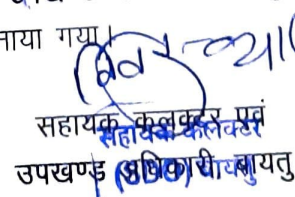 नाया गया।
सहायक कलक्टर एवं
सहायक कलक्टर
उपखण्ड अधिकारी, बायतु
(SDO) बायतु